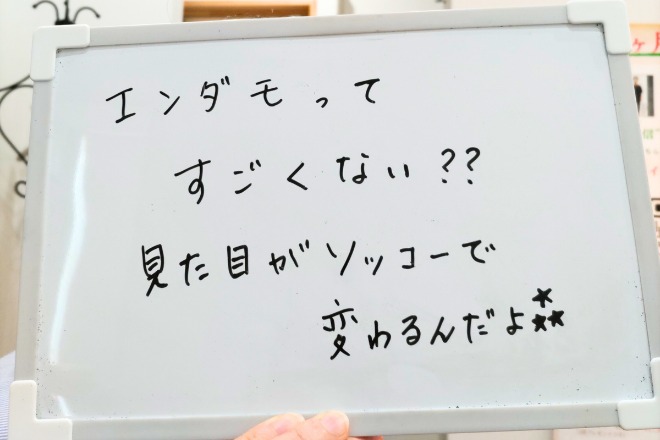 エンダモって
すごくない??
見た目がソッコーで
変わるんだよ★★★